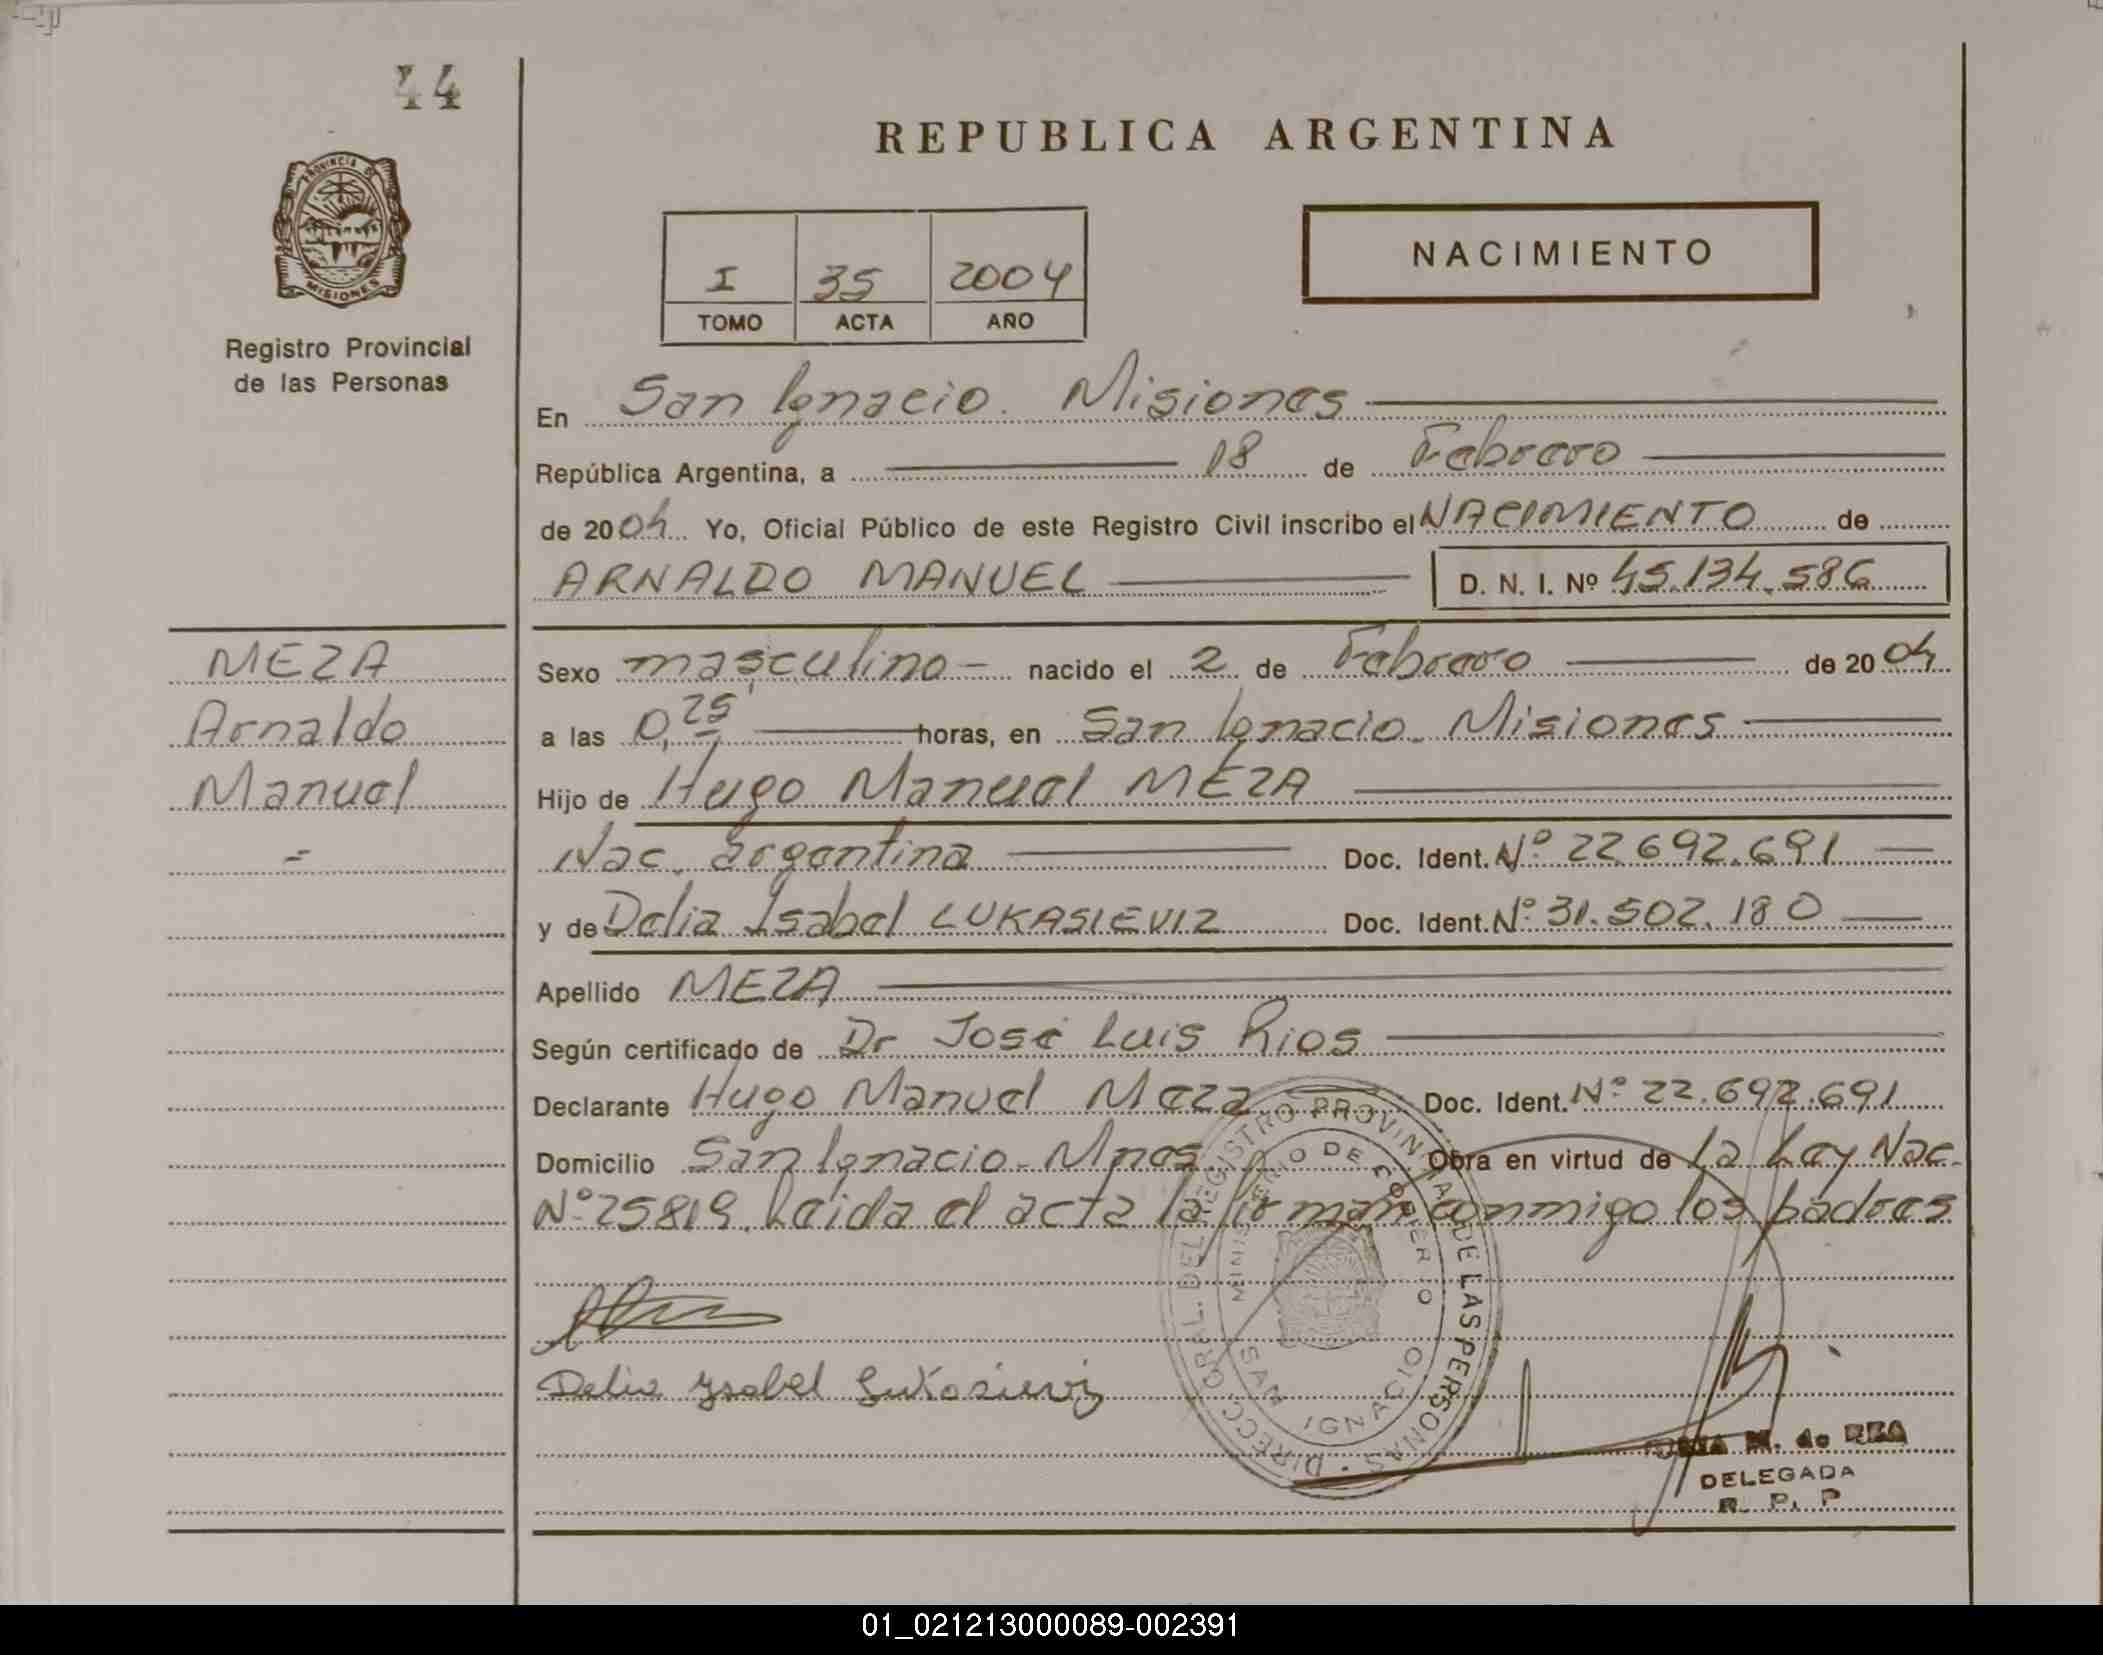 44
REPUBLICA ARGENTINA
PROVINCIA DE
MISIONES
Registro Provincial
de las Personas
I 35 2004
TOMO ACTA AÑO
NACIMIENTO
En San Ignacio. Misiones
República Argentina, a 18 de Febrero
de 2004 Yo, Oficial Público de este Registro Civil inscribo el NACIMIENTO de
ARNALDO MANUEL D. N. I. Nº 45.134.586
MEZA
Arnaldo
Manuel
Sexo masculino nacido el 2 de Febrero de 2004
a las 0,25' horas, en San Ignacio. Misiones
Hijo de Hugo Manuel MEZA
Nac. argentina Doc. Ident. Nº 22.692.691
y de Delia Isabel LUKASIEVIZ Doc. Ident. Nº 31.502.180
Apellido MEZA
Según certificado de Dr José Luis Rios
Declarante Hugo Manuel Meza Doc. Ident. Nº 22.692.691
Domicilio San Ignacio - Mnes Obra en virtud de la Ley Nac.
Nº 25819. Leida el acta la firman conmigo los padres
Delia Ysabel Lukasieviz
DIRECC. GRAL. DEL REGISTRO PROVINCIAL DE LAS PERSONAS
MINISTERIO DE GOBIERNO
SAN IGNACIO
M. de REA
DELEGADA
R. P. P
01_021213000089-002391